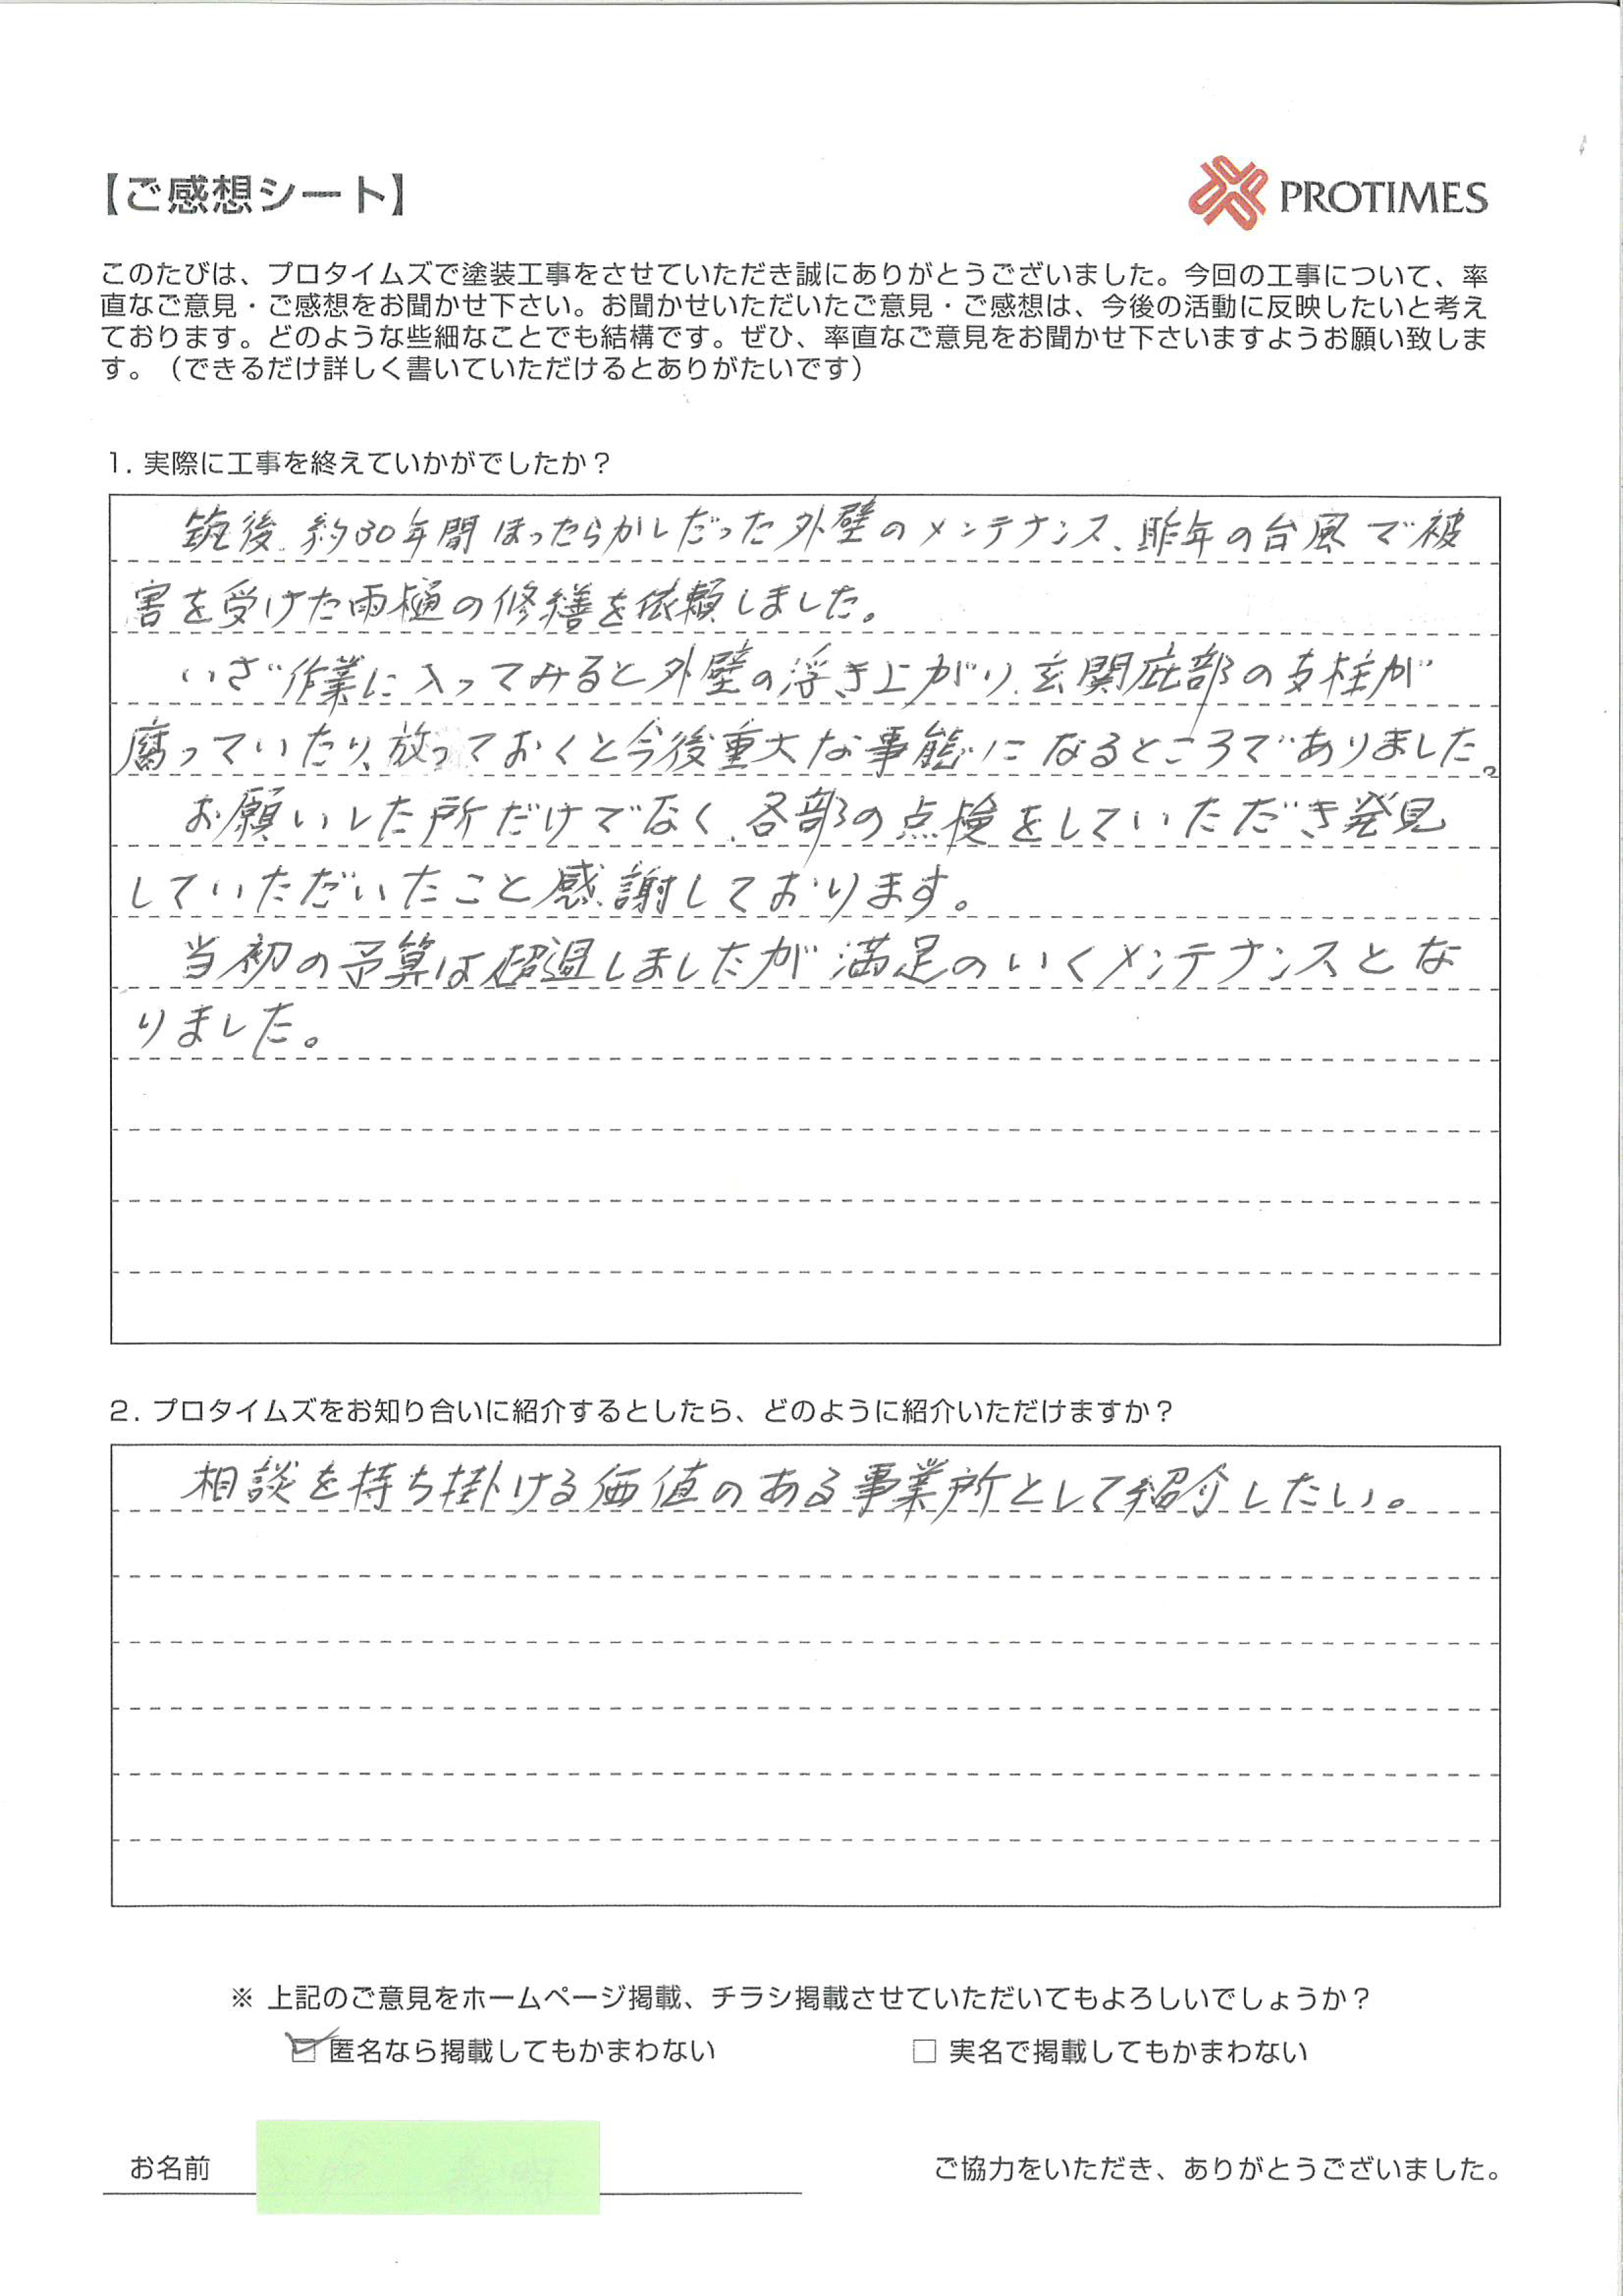 【ご感想シート】
PROTIMES
このたびは、プロタイムズで塗装工事をさせていただき誠にありがとうございました。今回の工事について、率
直なご意見・ご感想をお聞かせ下さい。お聞かせいただいたご意見・ご感想は、今後の活動に反映したいと考え
ております。どのような些細なことでも結構です。ぜひ、率直なご意見をお聞かせ下さいますようお願い致しま
す。（できるだけ詳しく書いていただけるとありがたいです）
1. 実際に工事を終えていかがでしたか？
筑後、約30年間ほったらかしだった外壁のメンテナンス、昨年の台風で被
害を受けた雨樋の修繕を依頼しました。
いざ作業に入ってみると外壁の浮き上がり、玄関庇部の支柱が
腐っていたり、放っておくと今後重大な事態になるところでありました。
お願いした所だけでなく、各部の点検をしていただき発見
していただいたこと感謝しております。
当初の予算は超過しましたが満足のいくメンテナンスとな
りました。
2. プロタイムズをお知り合いに紹介するとしたら、どのように紹介いただけますか？
相談を持ち掛ける価値のある事業所として紹介したい。
※ 上記のご意見をホームページ掲載、チラシ掲載させていただいてもよろしいでしょうか？
☑ 匿名なら掲載してもかまわない □ 実名で掲載してもかまわない
お名前 ご協力をいただき、ありがとうございました。